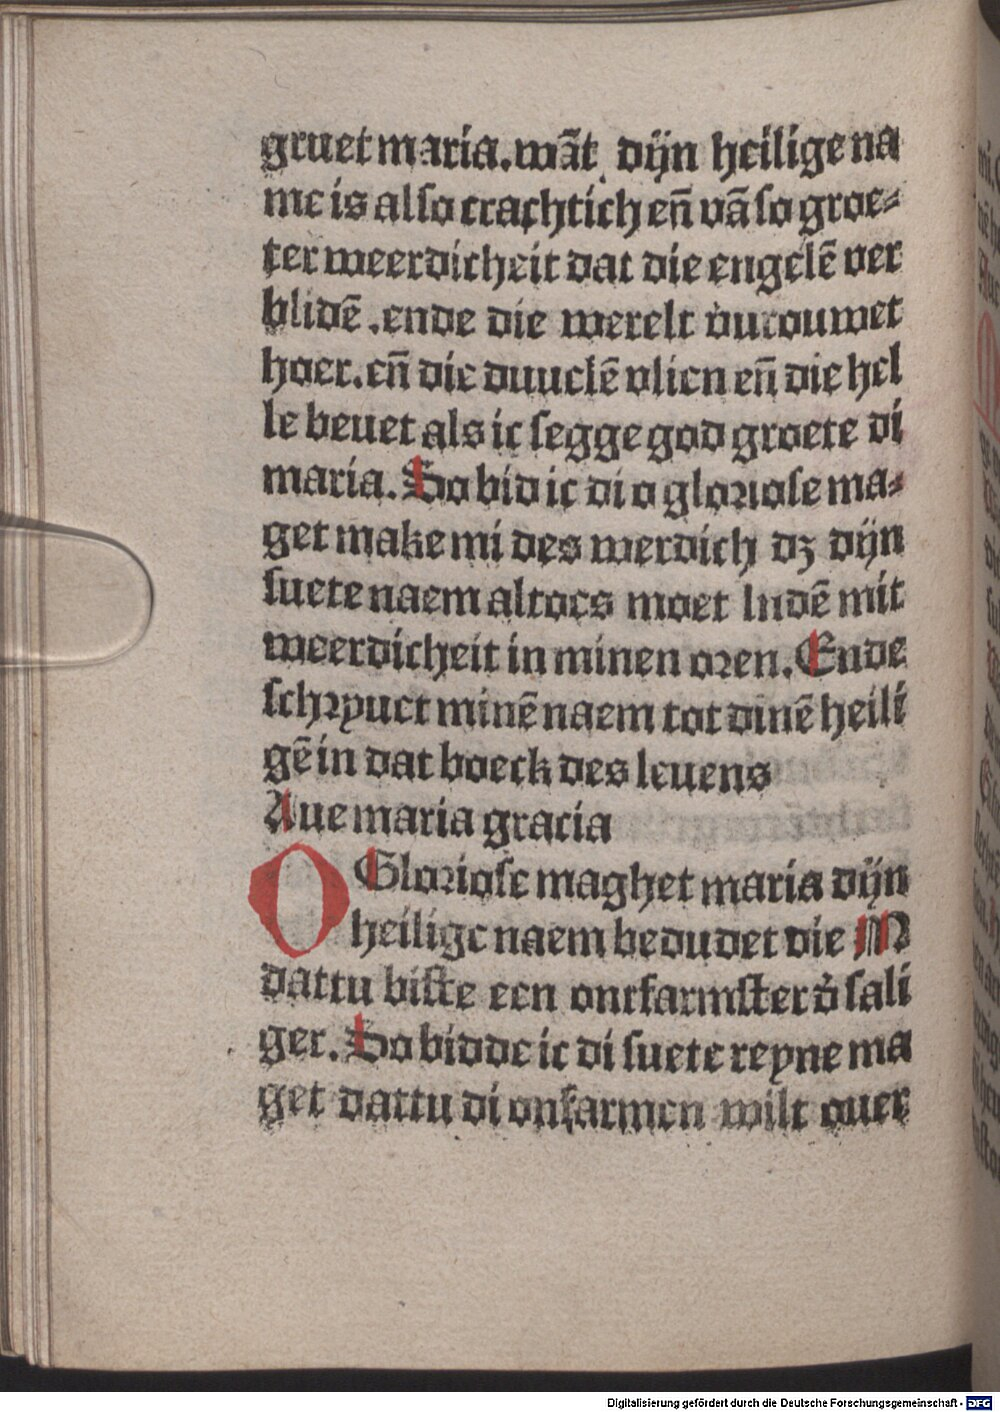 gruet maria. wāt dijn heilige na
me is also crachtich en̄ vā so groe⸗
ter weerdicheit dat die engelē ver
blidē .ende die werelt v̓urouwet
hoer. en̄ die duuclē vlien en̄ die hel
le beuet als ic segge god groete di
maria. So bid ic di o gloriose ma⸗
get make mi des werdich dz dijn
suete naem altoes moet ludē mit
weerdicheit in minen oren. Ende
schryuet minē naem tot dinē heili
gē in dat boeck des leuens
Aue maria gracia
O Gloriose maghet maria dijn
heilige naem bedudet die M
dattu biste een ontfarmster d̓ sali
ger. So bidde ic di suete reyne ma
get dattu di onfarmen wilt ouer
Digitalisierung gefördert durch die Deutsche Forschungsgemeinschaft - DFG